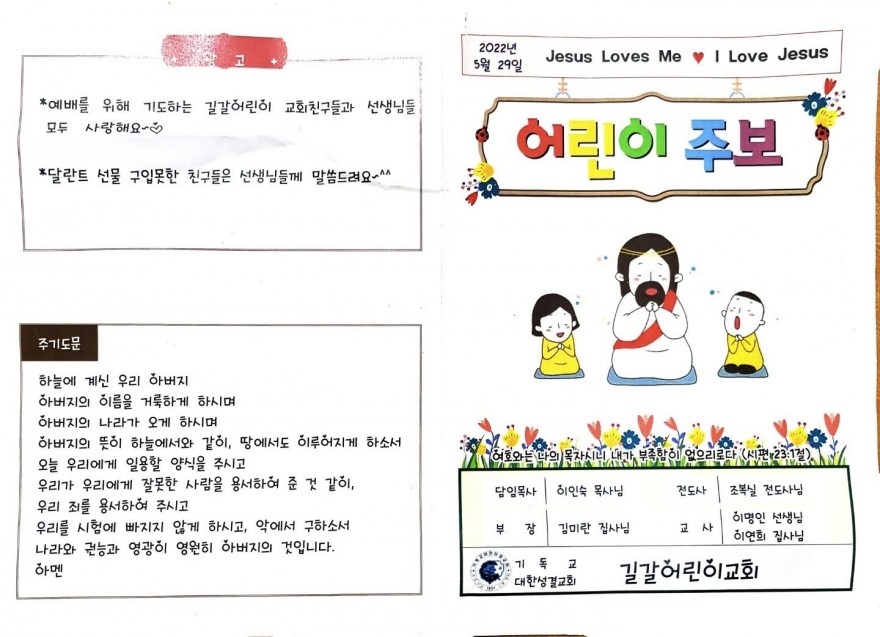 광 고
*예배를 위해 기도하는 길갈어린이 교회친구들과 선생님들
모두 사랑해요~♡
*달란트 선물 구입못한 친구들은 선생님들께 말씀드려요~^^
주기도문
하늘에 계신 우리 아버지
아버지의 이름을 거룩하게 하시며
아버지의 나라가 오게 하시며
아버지의 뜻이 하늘에서와 같이, 땅에서도 이루어지게 하소서
오늘 우리에게 일용할 양식을 주시고
우리가 우리에게 잘못한 사람을 용서하여 준 것 같이,
우리 죄를 용서하여 주시고
우리를 시험에 빠지지 않게 하시고, 악에서 구하소서
나라와 권능과 영광이 영원히 아버지의 것입니다.
아멘
2022년
5월 29일
Jesus Loves Me ♥ I Love Jesus
어린이 주보
여호와는 나의 목자시니 내가 부족함이 없으리로다 (시편 23:1절)
담임목사 이인숙 목사님 전도사 조복실 전도사님
부 장 김미란 집사님 교 사 이명인 선생님
이연희 집사님
기 독 교
대한성결교회
길갈어린이교회